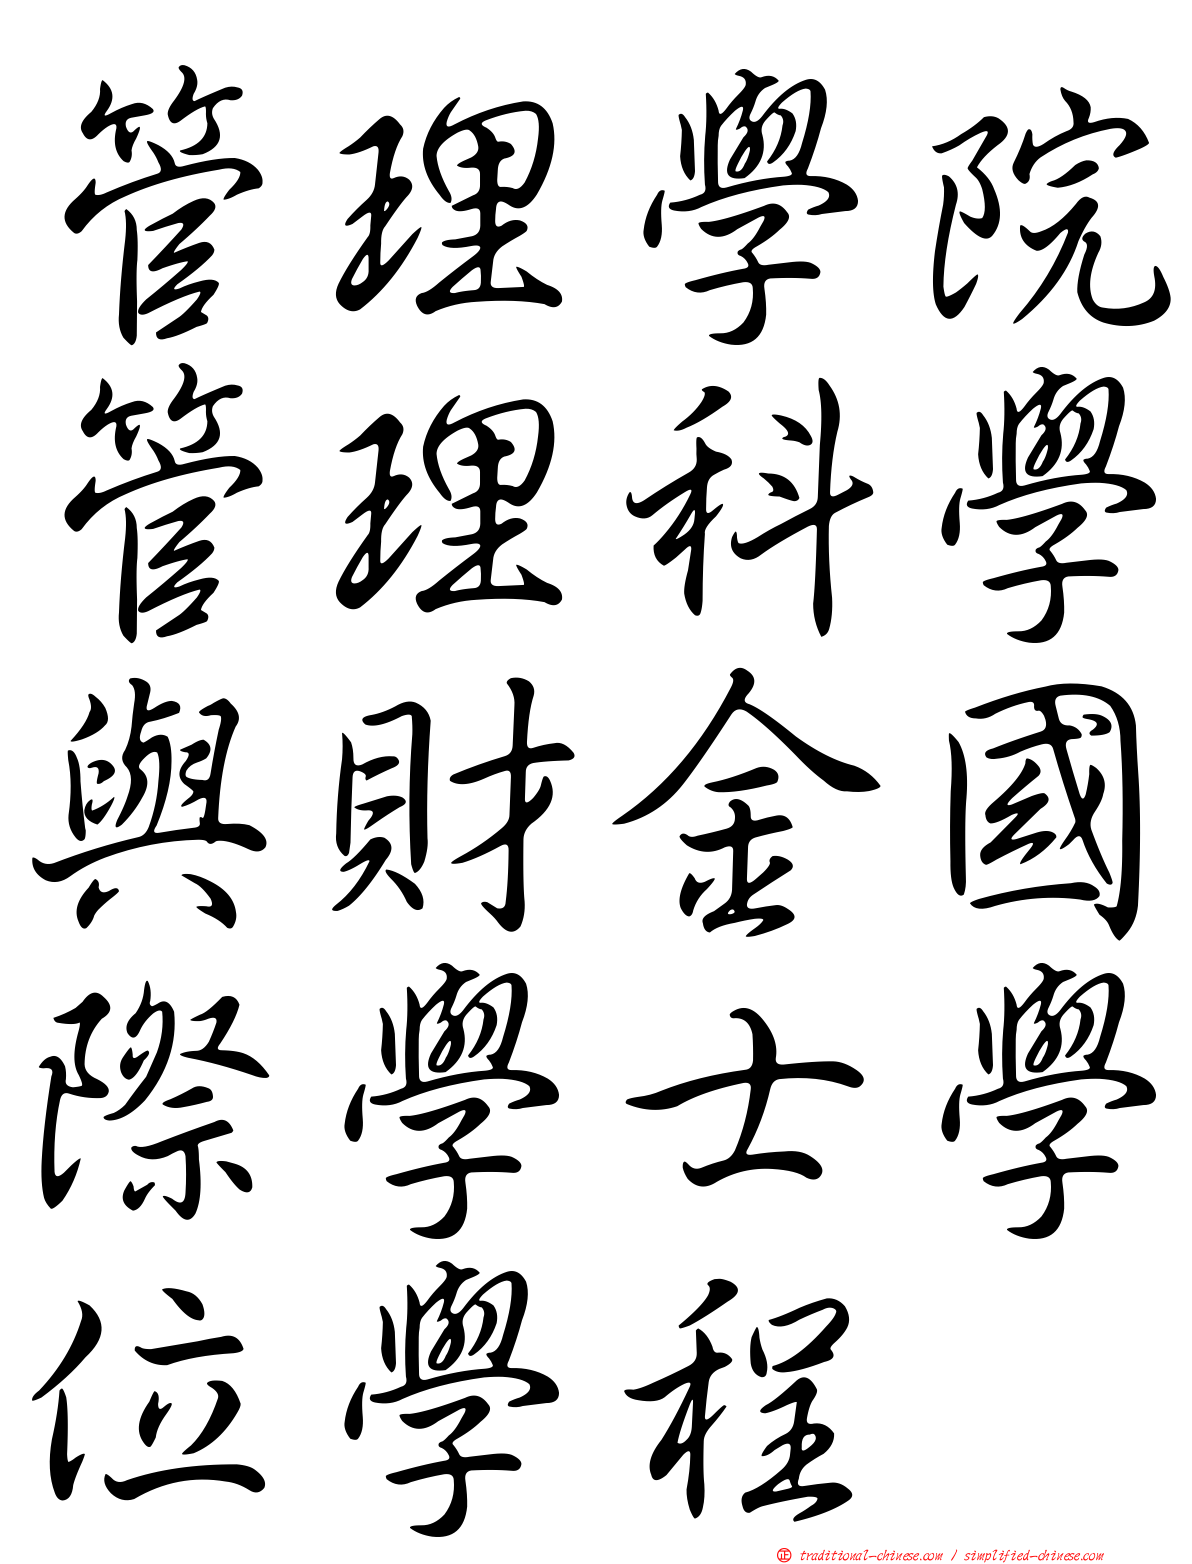 管理學院
管理科學
與財金國
際學士學
位學程
正 traditional-chinese.com / simplified-chinese.com